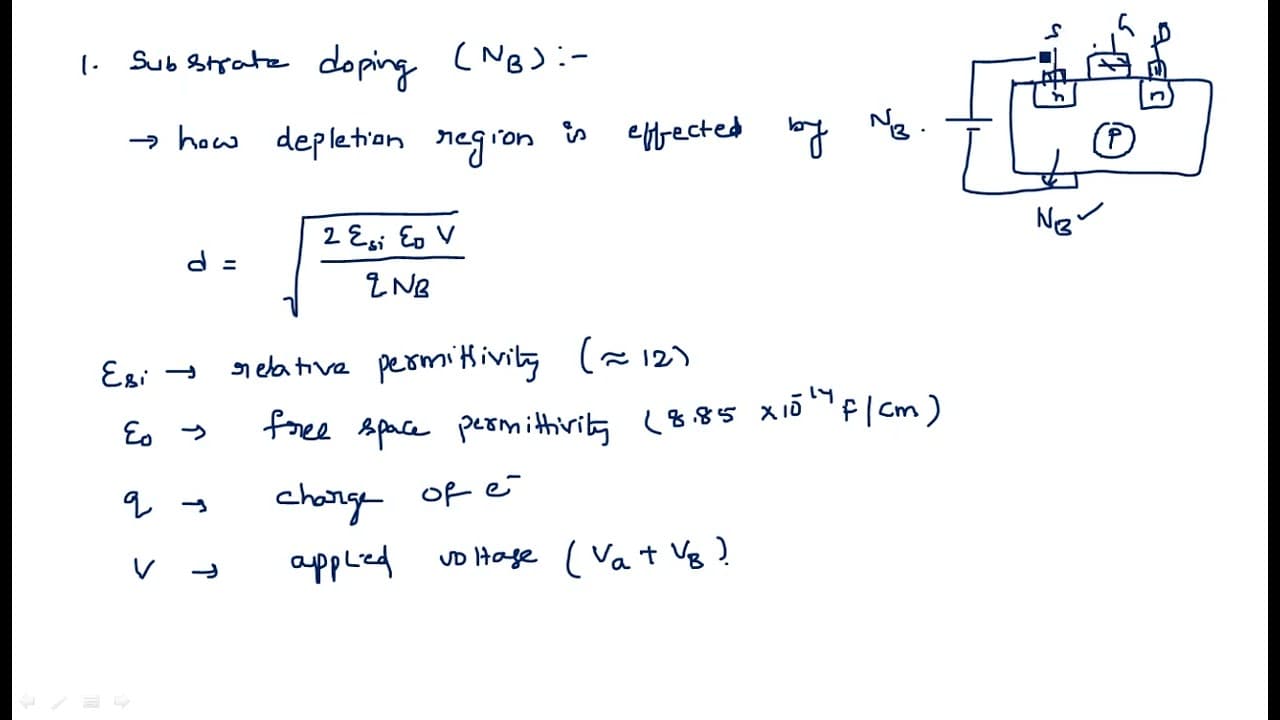 1. Substrate doping (NB) :-
→ how depletion region is effected by NB.
d = √(2 Esi E0 V / q NB)
Esi → relative permittivity (≈ 12)
E0 → free space permittivity (8.85 × 10⁻¹⁴ F/cm)
q → charge of e⁻
V → applied voltage (Va + VB)
S G D
n n
P
NB ✓